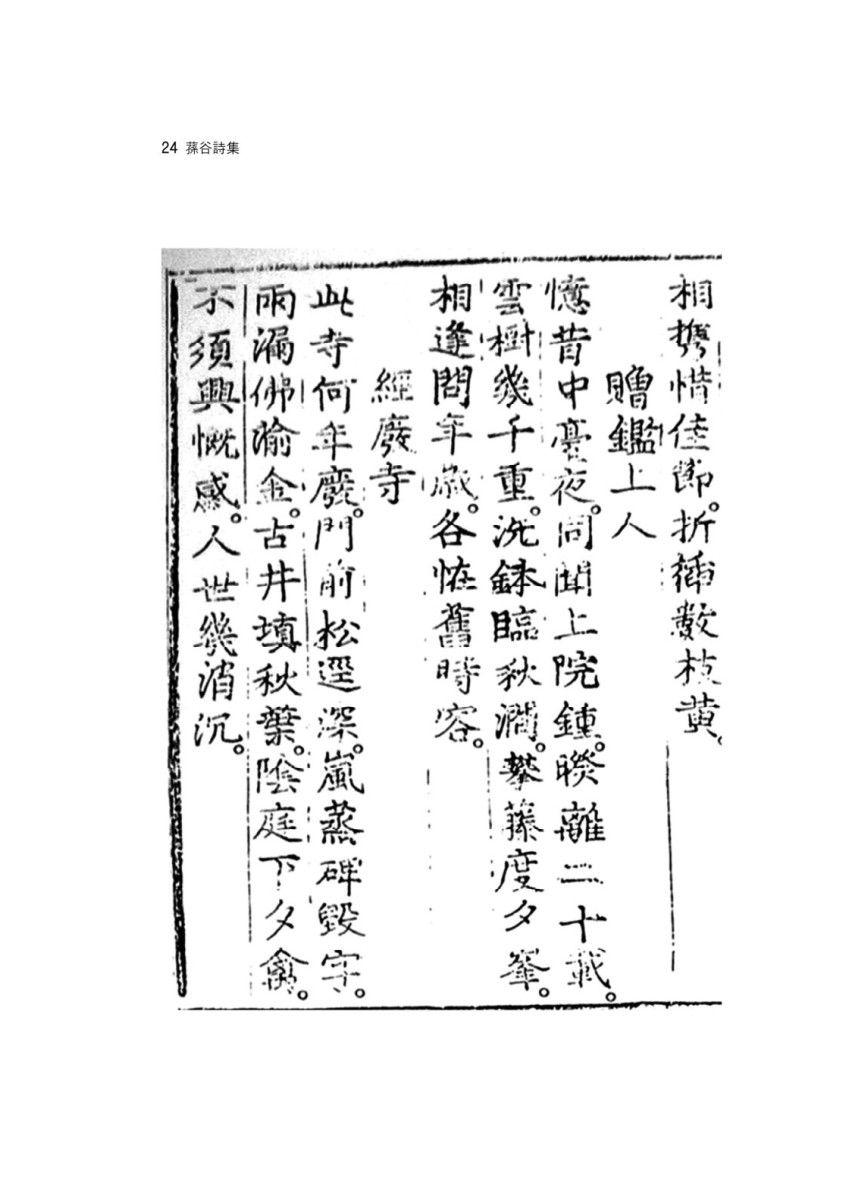 24 蓀谷詩集
相携惜佳節。折揷數枝黄。
贈鑑上人
憶昔中臺夜。同聞上院鍾。睽離二十載。
雲樹幾千重。洗鉢臨秋澗。攀藤度夕峯。
相逢問年歲。各恠舊時容。
經廢寺
此寺何年廢。門前松逕深。嵐蒸碑毁字。
雨漏佛渝金。古井塡秋葉。陰庭下夕禽。
不須興慨感。人世幾消沉。